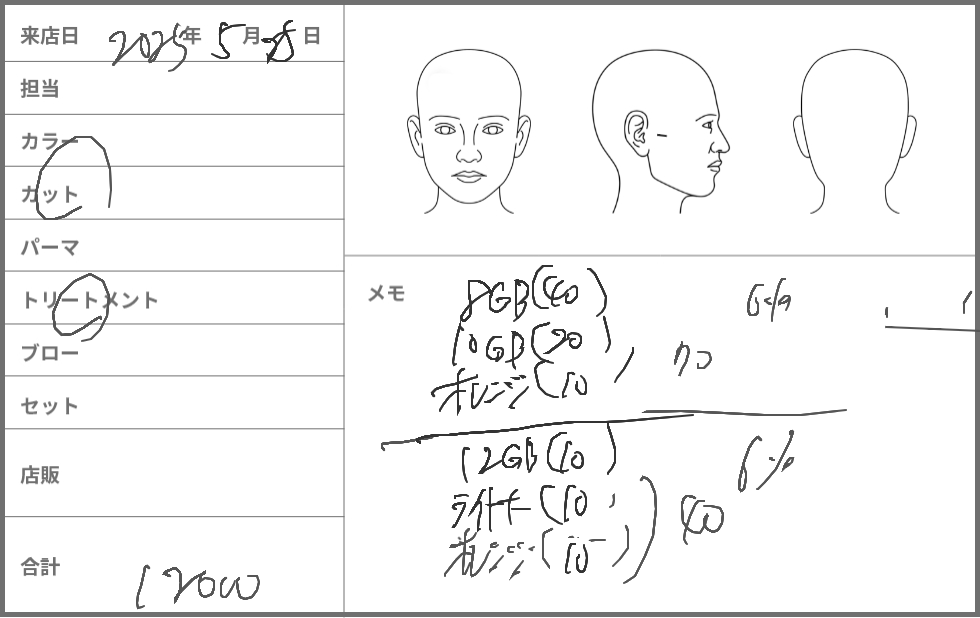 来店日 2025年 5月 25日
担当
カラー
カット
パーマ
トリートメント
ブロー
セット
店販
合計 12000
メモ
8GB(40) 6%
10GB(20)
オレンジ(10)
12GB(10) 6%
ライナー(10)
オレンジ(10) 40